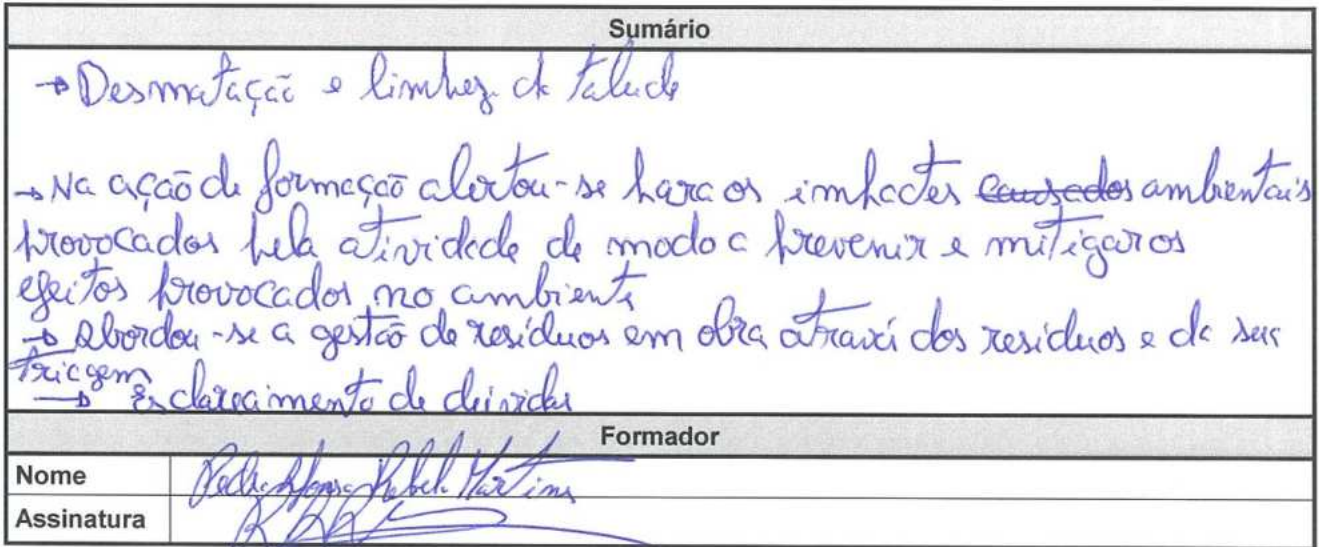 Sumário
→ Desmatação e limpeza de talude
→ Na ação de formação alertou-se para os impactes causados ambientais
provocados pela atividade de modo a prevenir e mitigar os
efeitos provocados no ambiente
→ Abordou-se a gestão de resíduos em obra através dos resíduos e da sua
triagem
→ Esclarecimento de dúvidas
Formador
Nome Pedro Afonso Rebelo Martins
Assinatura